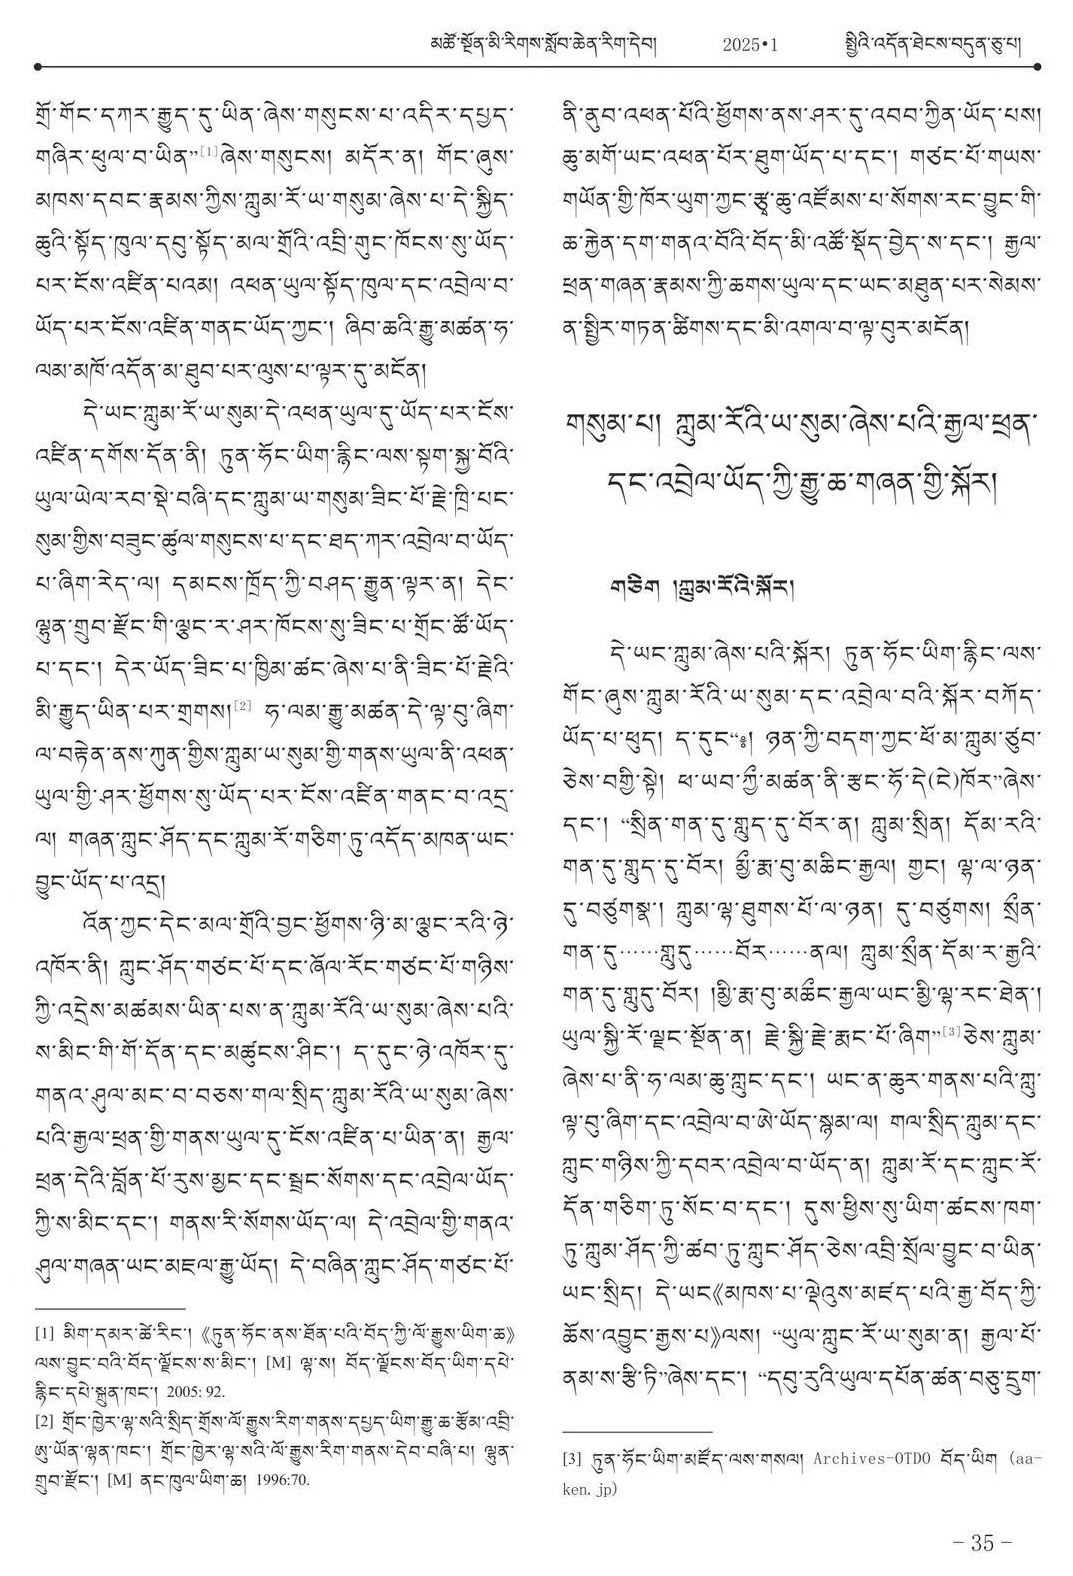 མཚོ་སྔོན་མི་རིགས་སློབ་ཆེན་རིག་དེབ། 2025•1 སྤྱིའི་འདོན་ཐེངས་བདུན་ཅུ་པ།
གྲོ་གོང་དཀར་རྒྱུད་དུ་ཡིན་ཞེས་གསུངས་པ་འདིར་དཔྱད་
གཞིར་ཕུལ་བ་ཡིན”[1]ཞེས་གསུངས། མདོར་ན། གོང་ཞུས་
མཁས་དབང་རྣམས་ཀྱིས་ཀླུམ་རོ་ཡ་གསུམ་ཞེས་པ་དེ་སྐྱིད་
ཆུའི་སྟོད་ཁུལ་དབུ་སྟོད་མལ་གྲོའི་འབྲི་གུང་ཁོངས་སུ་ཡོད་
པར་ངོས་འཛིན་པའམ། འཕན་ཡུལ་སྟོད་ཁུལ་དང་འབྲེལ་བ་
ཡོད་པར་ངོས་འཛིན་གནང་ཡོད་ཀྱང་། ཞིབ་ཆའི་རྒྱུ་མཚན་ཧ་
ལམ་མཁོ་འདོན་མ་ཐུབ་པར་ལུས་པ་ལྟར་དུ་མངོན།
དེ་ཡང་ཀླུམ་རོ་ཡ་སུམ་དེ་འཕན་ཡུལ་དུ་ཡོད་པར་ངོས་
འཛིན་དགོས་དོན་ནི། ཏུན་ཧོང་ཡིག་རྙིང་ལས་སྟག་སྐྱ་བོའི་
ཡུལ་ཡེལ་རབ་སྡེ་བཞི་དང་ཀླུམ་ཡ་གསུམ་ཟིང་པོ་རྗེ་ཁྲི་པང་
སུམ་གྱིས་བཟུང་ཚུལ་གསུངས་པ་དང་ཐད་ཀར་འབྲེལ་བ་ཡོད་
པ་ཞིག་རེད་ལ། དམངས་ཁྲོད་ཀྱི་བཤད་རྒྱུན་ལྟར་ན། དེང་
ལྷུན་གྲུབ་རྫོང་གི་ལྕང་ར་ཤར་ཁོངས་སུ་ཟིང་པ་གྲོང་ཚོ་ཡོད་
པ་དང་། དེར་ཡོད་ཟིང་པ་ཁྱིམ་ཚང་ཞེས་པ་ནི་ཟིང་པོ་རྗེའི་
མི་རྒྱུད་ཡིན་པར་གྲགས།[2] ཧ་ལམ་རྒྱུ་མཚན་དེ་ལྟ་བུ་ཞིག་
ལ་བརྟེན་ནས་ཀུན་གྱིས་ཀླུམ་ཡ་སུམ་གྱི་གནས་ཡུལ་ནི་འཕན་
ཡུལ་གྱི་ཤར་ཕྱོགས་སུ་ཡོད་པར་ངོས་འཛིན་གནང་བ་འདྲ་
ལ། གཞན་ཀླུང་ཤོད་དང་ཀླུམ་རོ་གཅིག་ཏུ་འདོད་མཁན་ཡང་
བྱུང་ཡོད་པ་འདྲ།
འོན་ཀྱང་དེང་མལ་གྲོའི་བྱང་ཕྱོགས་ཉི་མ་ལྕང་རའི་ཉེ་
འཁོར་ནི། ཀླུང་ཤོད་གཙང་པོ་དང་ཞོལ་རོང་གཙང་པོ་གཉིས་
ཀྱི་འདྲེས་མཚམས་ཡིན་པས་ན་ཀླུམ་རོའི་ཡ་སུམ་ཞེས་པའི་
ས་མིང་གི་གོ་དོན་དང་མཚུངས་ཤིང་། ད་དུང་ཉེ་འཁོར་དུ་
གནའ་ཤུལ་མང་བ་བཅས་གལ་སྲིད་ཀླུམ་རོའི་ཡ་སུམ་ཞེས་
པའི་རྒྱལ་ཕྲན་གྱི་གནས་ཡུལ་དུ་ངོས་འཛིན་པ་ཡིན་ན། རྒྱལ་
ཕྲན་དེའི་བློན་པོ་རུས་མྱང་དང་སྦྲང་སོགས་དང་འབྲེལ་ཡོད་
ཀྱི་ས་མིང་དང་། གནས་རི་སོགས་ཡོད་ལ། དེ་འབྲེལ་གྱི་གནའ་
ཤུལ་གཞན་ཡང་མཇལ་རྒྱུ་ཡོད། དེ་བཞིན་ཀླུང་ཤོད་གཙང་པོ་
[1] མིག་དམར་ཚེ་རིང་། 《ཏུན་ཧོང་ནས་ཐོན་པའི་བོད་ཀྱི་ལོ་རྒྱུས་ཡིག་ཆ》
ལས་བྱུང་བའི་བོད་ལྗོངས་ས་མིང་། [M] ལྷ་ས། བོད་ལྗོངས་བོད་ཡིག་དཔེ་
རྙིང་དཔེ་སྐྲུན་ཁང་། 2005: 92.
[2] གྲོང་ཁྱེར་ལྷ་སའི་སྲིད་གྲོས་ལོ་རྒྱུས་རིག་གནས་དཔྱད་ཡིག་རྒྱུ་ཆ་རྩོམ་འབྲི་
ཨུ་ཡོན་ལྷན་ཁང་། གྲོང་ཁྱེར་ལྷ་སའི་ལོ་རྒྱུས་རིག་གནས་དེབ་བཞི་པ། ལྷུན་
གྲུབ་རྫོང་། [M] ནང་ཁུལ་ཡིག་ཆ། 1996:70.
ནི་ནུབ་འཕན་པོའི་ཕྱོགས་ནས་ཤར་དུ་འབབ་ཀྱིན་ཡོད་པས།
ཆུ་མགོ་ཡང་འཕན་པོར་ཐུག་ཡོད་པ་དང་། གཙང་པོ་གཡས་
གཡོན་གྱི་ཁོར་ཡུག་ཀྱང་རྩྭ་ཆུ་འཛོམས་པ་སོགས་རང་བྱུང་གི་
ཆ་རྐྱེན་དག་གནའ་བོའི་བོད་མི་འཚོ་སྡོད་བྱེད་ས་དང་། རྒྱལ་
ཕྲན་གཞན་རྣམས་ཀྱི་ཆགས་ཡུལ་དང་ཡང་མཐུན་པར་སེམས་
ན་སྤྱིར་གཏན་ཚིགས་དང་མི་འགལ་བ་ལྟ་བུར་མངོན།
གསུམ་པ། ཀླུམ་རོའི་ཡ་སུམ་ཞེས་པའི་རྒྱལ་ཕྲན་
དང་འབྲེལ་ཡོད་ཀྱི་རྒྱུ་ཆ་གཞན་གྱི་སྐོར།
གཅིག །ཀླུམ་རོའི་སྐོར།
དེ་ཡང་ཀླུམ་ཞེས་པའི་སྐོར། ཏུན་ཧོང་ཡིག་རྙིང་ལས་
གོང་ཞུས་ཀླུམ་རོའི་ཡ་སུམ་དང་འབྲེལ་བའི་སྐོར་བཀོད་
ཡོད་པ་ཕུད། ད་དུང“༔། ཉན་ཀྱི་བདག་ཀྱང་ཕོ་མ་ཀླུམ་ཙུབ་
ཅེས་བགྱི་སྟེ། ཕ་ཡབ་ཀྱཱི་མཚན་ནི་རྩང་ཧོ་དེ(ངེ)ཁོར”ཞེས་
དང་། “སྲིན་གན་དུ་གླུད་དུ་བོར་ན། ཀླུམ་སྲིན། དོམ་རའི་
གན་དུ་གླུད་དུ་བོར། མྱི་རྨ་བུ་མཆིང་རྒྱལ། གྱང། ལྷ་ལ་ཉན་
དུ་བཙུགསྣ། ཀླུམ་ལྷ་ཐུགས་པོ་ལ་ཉན། དུ་བཙུགས། སྲིན་
གན་ད་······གླུད་······བོར······ནལ། ཀླུམ་སྲིན་དོམ་ར་རྒྱའི་
གན་དུ་གླུད་བོར། །མྱི་རྨ་བུ་མཆིང་རྒྱལ་ཡང་མྱི་ལྷ་རང་ཐེན།
ཡུལ་སྐྱི་རོ་ལྗང་སྔོན་ན། རྗེ་སྐྱི་རྗེ་རྨང་པོ་ཞིག”[3]ཅེས་ཀླུམ་
ཞེས་པ་ནི་ཧ་ལམ་ཆུ་ཀླུང་དང་། ཡང་ན་ཆུར་གནས་པའི་ཀླུ་
ལྟ་བུ་ཞིག་དང་འབྲེལ་བ་ཨེ་ཡོད་སྙམ་ལ། གལ་སྲིད་ཀླུམ་དང་
ཀླུང་གཉིས་ཀྱི་དབར་འབྲེལ་བ་ཡོད་ན། ཀླུམ་རོ་དང་ཀླུང་རོ་
དོན་གཅིག་ཏུ་སོང་བ་དང་། དུས་ཕྱིས་སུ་ཡིག་ཚངས་ཁག་
ཏུ་ཀླུམ་ཤོད་ཀྱི་ཚབ་ཏུ་ཀླུང་ཤོད་ཅེས་འབྲི་སྲོལ་བྱུང་བ་ཡིན་
ཡང་སྲིད། དེ་ཡང《མཁས་པ་ལྡེའུས་མཛད་པའི་རྒྱ་བོད་ཀྱི་
ཆོས་འབྱུང་རྒྱས་པ》ལས། “ཡུལ་ཀླུང་རོ་ཡ་སུམ་ན། རྒྱལ་པོ་
ནམ་ས་རྩི་ཏི”ཞེས་དང་། “དབུ་རུའི་ཡུལ་དཔོན་ཚན་བཅུ་དྲུག་
[3] ཏུན་ཧོང་ཡིག་མཛོད་ལས་གསལ། Archives-OTDO བོད་ཡིག (aa-
ken.jp)
－35－